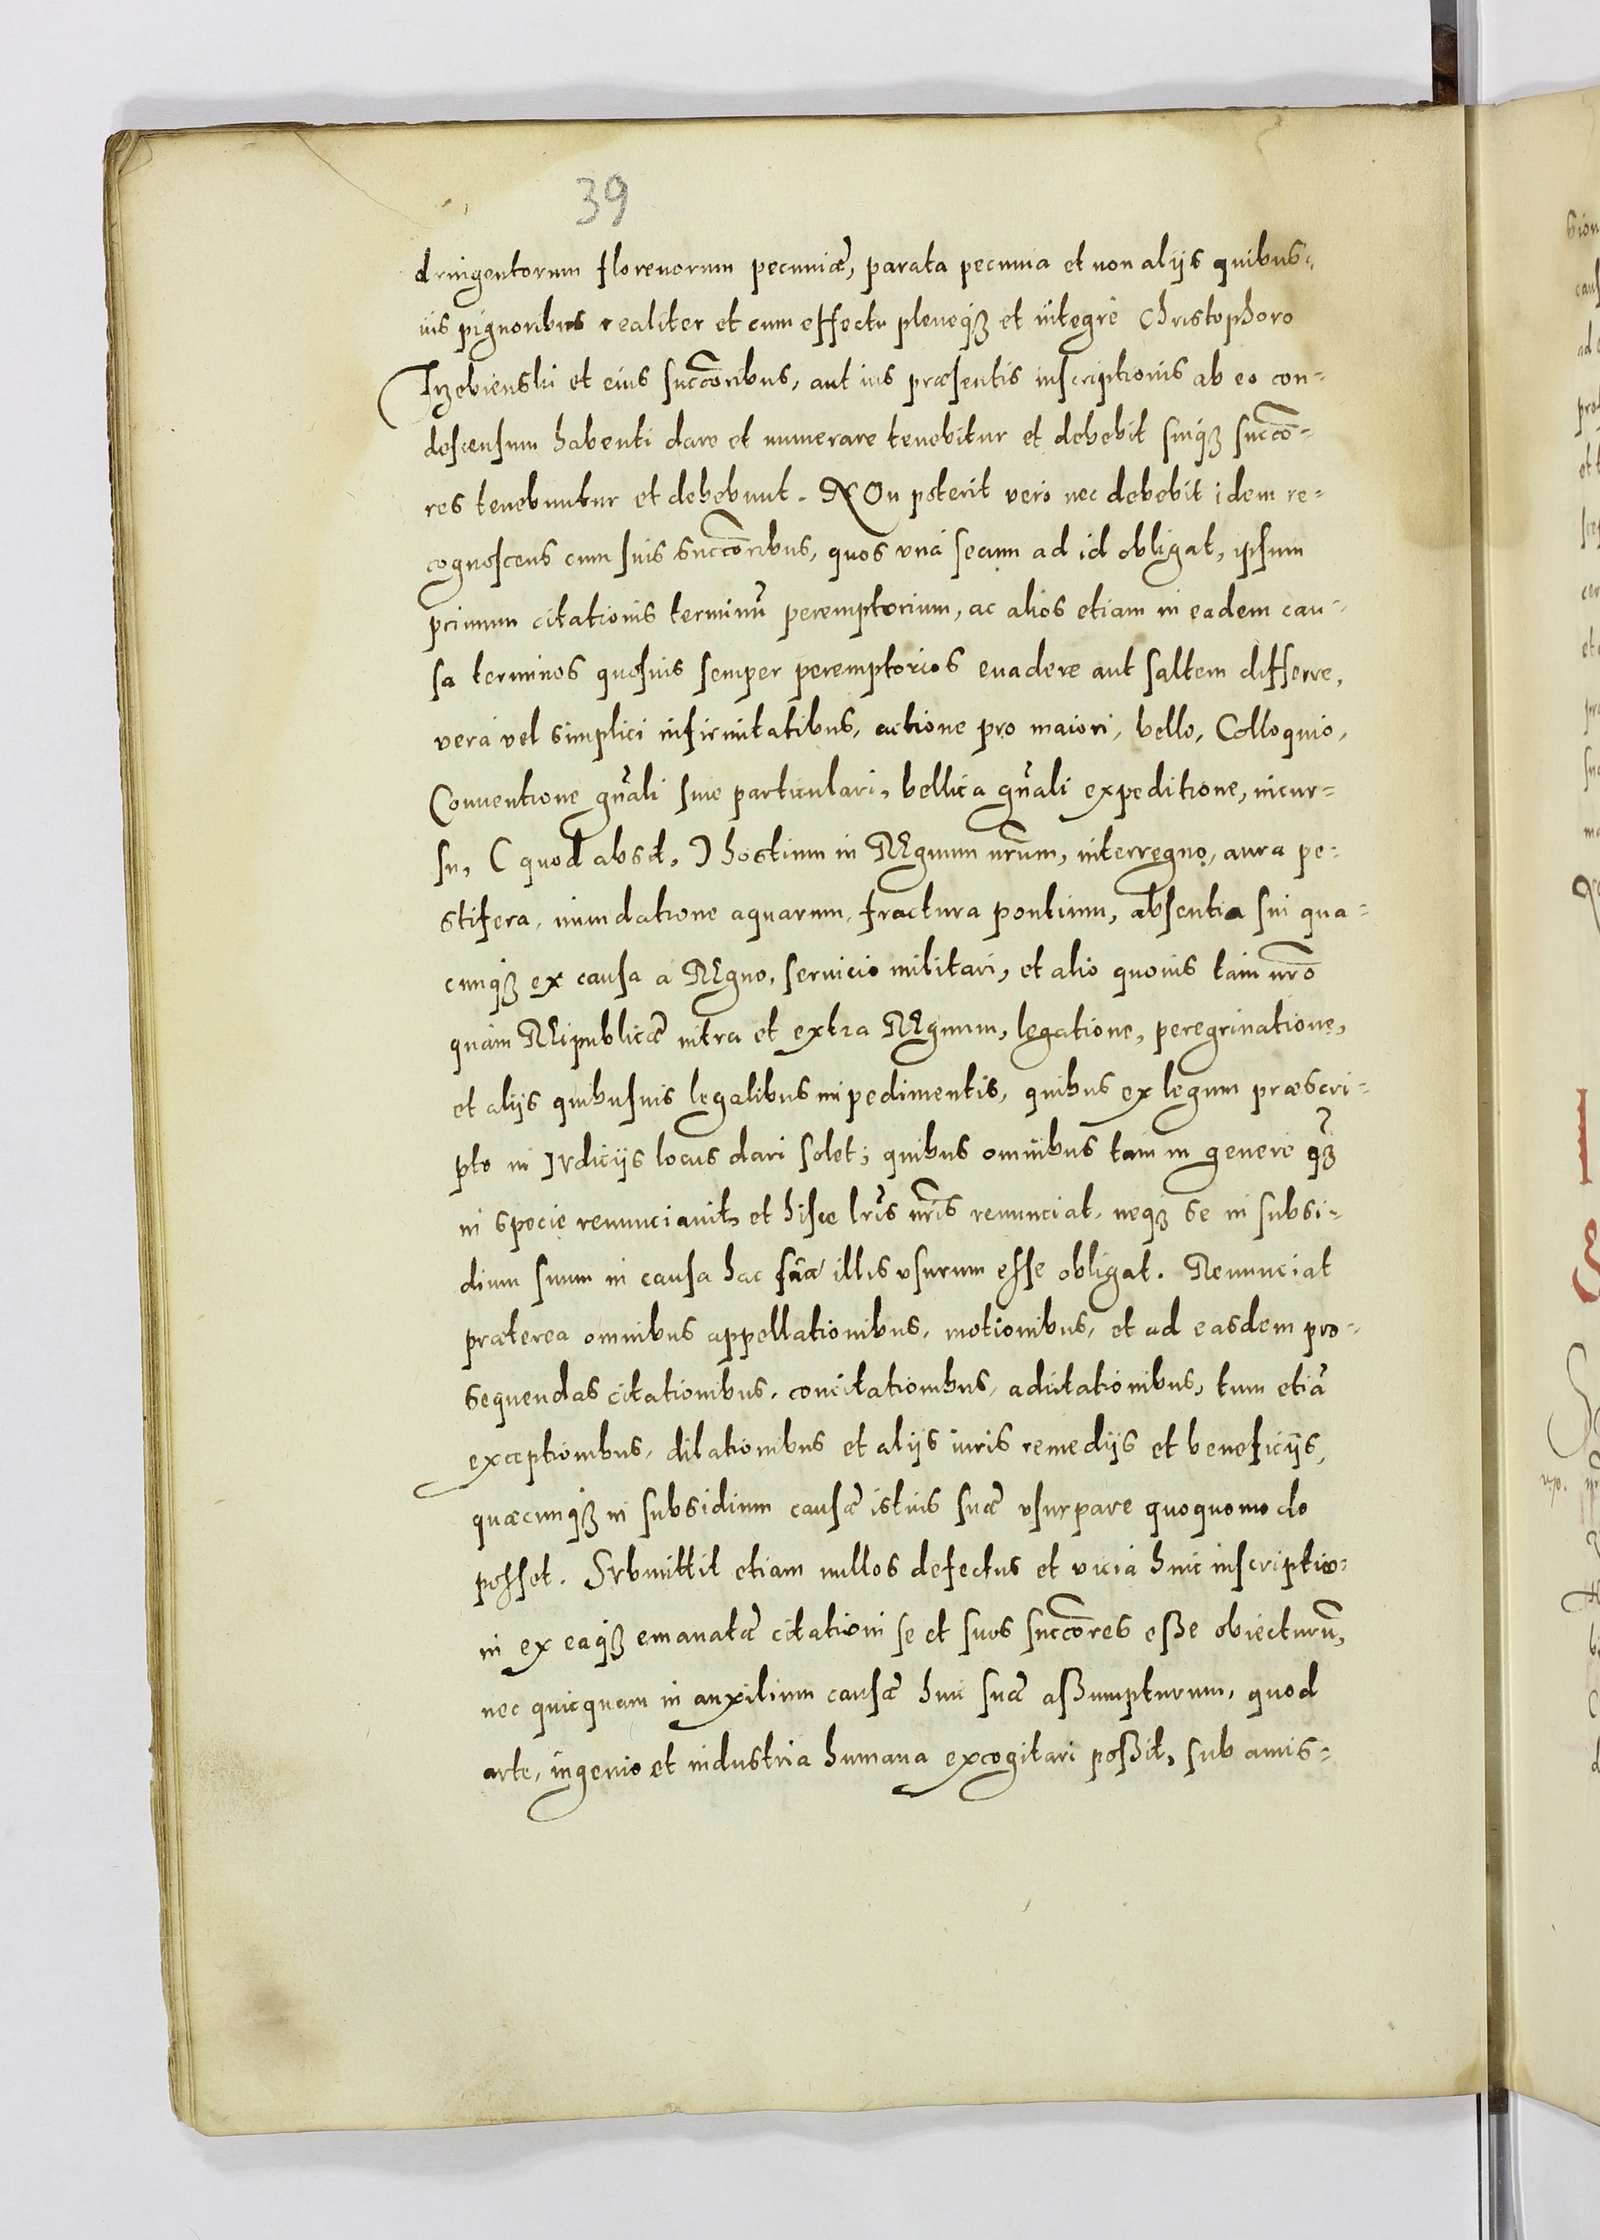 39
dringentorum florenorum pecuniæ, parata pecunia et non alijs quibus-
uis pignoribus realiter et cum effectu pleneq; et integrè Christophoro
Trzebienski et eius succōribus, aut ius præsentis inscriptionis ab eo con-
descensum habenti dare et numerare tenebitur et debebit suiq; succō-
res tenebuntur et debebunt. NOn poterit vero nec debebit idem re-
cognoscens cum suis succōribus, quos vnà secum ad id obligat, ipsum
primum citationis terminū peremptorium, ac alios etiam in eadem cau-
sa terminos quosuis semper peremptorios euadere aut saltem differre,
vera vel simplici infirmitatibus, actione pro maiori, bello, Colloquio,
Conuentione gñali siue particulari, bellica gñali expeditione, incur-
su, (quod absit,) hostium in REgnum nrūm, interregno, aura pe-
stifera, inundatione aquarum, fractura pontium, absentia sui qua-
cunq; ex causa à REgno, seruicio militari, et alio quouis tam nrō
quàm REipublicæ intra et extra REgnum, legatione, peregrinatione,
et alijs quibusuis legalibus impedimentis, quibus ex legum præscri-
pto in Iudicijs locus dari solet; quibus omnibus tam in genere q̃;
in specie renunciauit, et hisce lrīs nrīs renunciat, neq; se in subsi-
dium suum in causa hac sua illis vsurum esse obligat. Renunciat
præterea omnibus appellationibus, motionibus, et ad easdem pro-
sequendas citationibus, concitationibus, adcitationibus, tum etiā
exceptionibus, dilationibus et alijs iuris remedijs et beneficijs,
quæcunq; in subsidium causæ istius suæ vsurpare quoquomodo
posset. Submittit etiam nullos defectus et vicia huic inscriptio-
ni ex eaq; emanatæ citationi se et suos succōres eße obiecturū,
nec quicquam in auxilium causæ huic suæ aßumpturum, quod
arte, ingenio et industria humana excogitari poßit, sub amis-